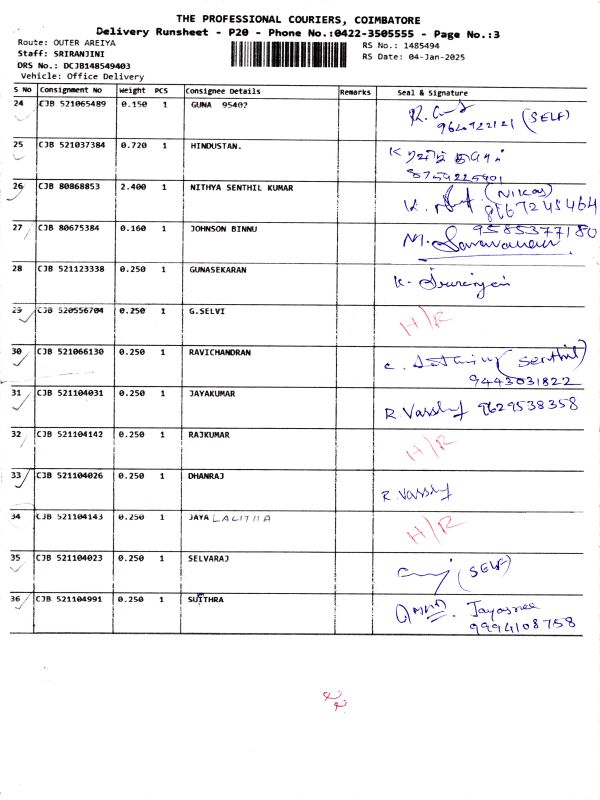 THE PROFESSIONAL COURIERS, COIMBATORE
Delivery Runsheet - P20 - Phone No.:0422-3505555 - Page No.:3
Route: OUTER AREIYA
RS No.: 1485494
Staff: SRIRANJINI
RS Date: 04-Jan-2025
DRS No.: DCJB148549403
Vehicle: Office Delivery
S No Consignment No Weight PCS Consignee Details Remarks Seal & Signature
24 CJB 521065489 0.150 1 GUNA 95402
(SELF)
25 CJB 521037384 0.720 1 HINDUSTAN.
8759225901
26 CJB 80868853 2.400 1 NITHYA SENTHIL KUMAR
8667245464
27 CJB 80675384 0.160 1 JOHNSON BINNU
9585377180
M. Saravanan
28 CJB 521123338 0.250 1 GUNASEKARAN
29 CJB 520556704 0.250 1 G.SELVI H/R
30 CJB 521066130 0.250 1 RAVICHANDRAN (Senthil)
9443031822
31 CJB 521104031 0.250 1 JAYAKUMAR R Vassly 9629538358
32 CJB 521104142 0.250 1 RAJKUMAR H/R
33 CJB 521104026 0.250 1 DHANRAJ R Vassly
34 CJB 521104143 0.250 1 JAYA LALITHA H/R
35 CJB 521104023 0.250 1 SELVARAJ (SELF)
36 CJB 521104991 0.250 1 SUITHRA Jayasree
9994108758